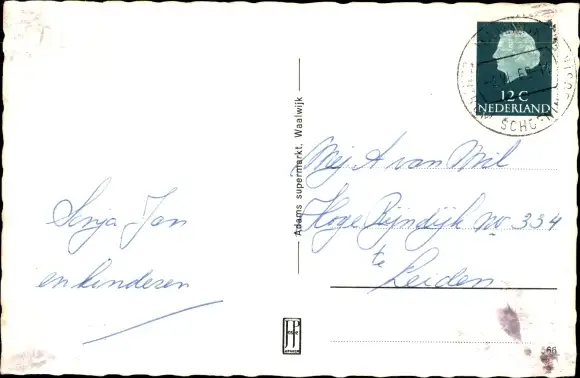 12 C
NEDERLAND
Adams supermarkt, Waalwijk
Mej A van Mil
Hoge Rijndijk no 334
te
Leiden
Sonja Jan
en kinderen
JP